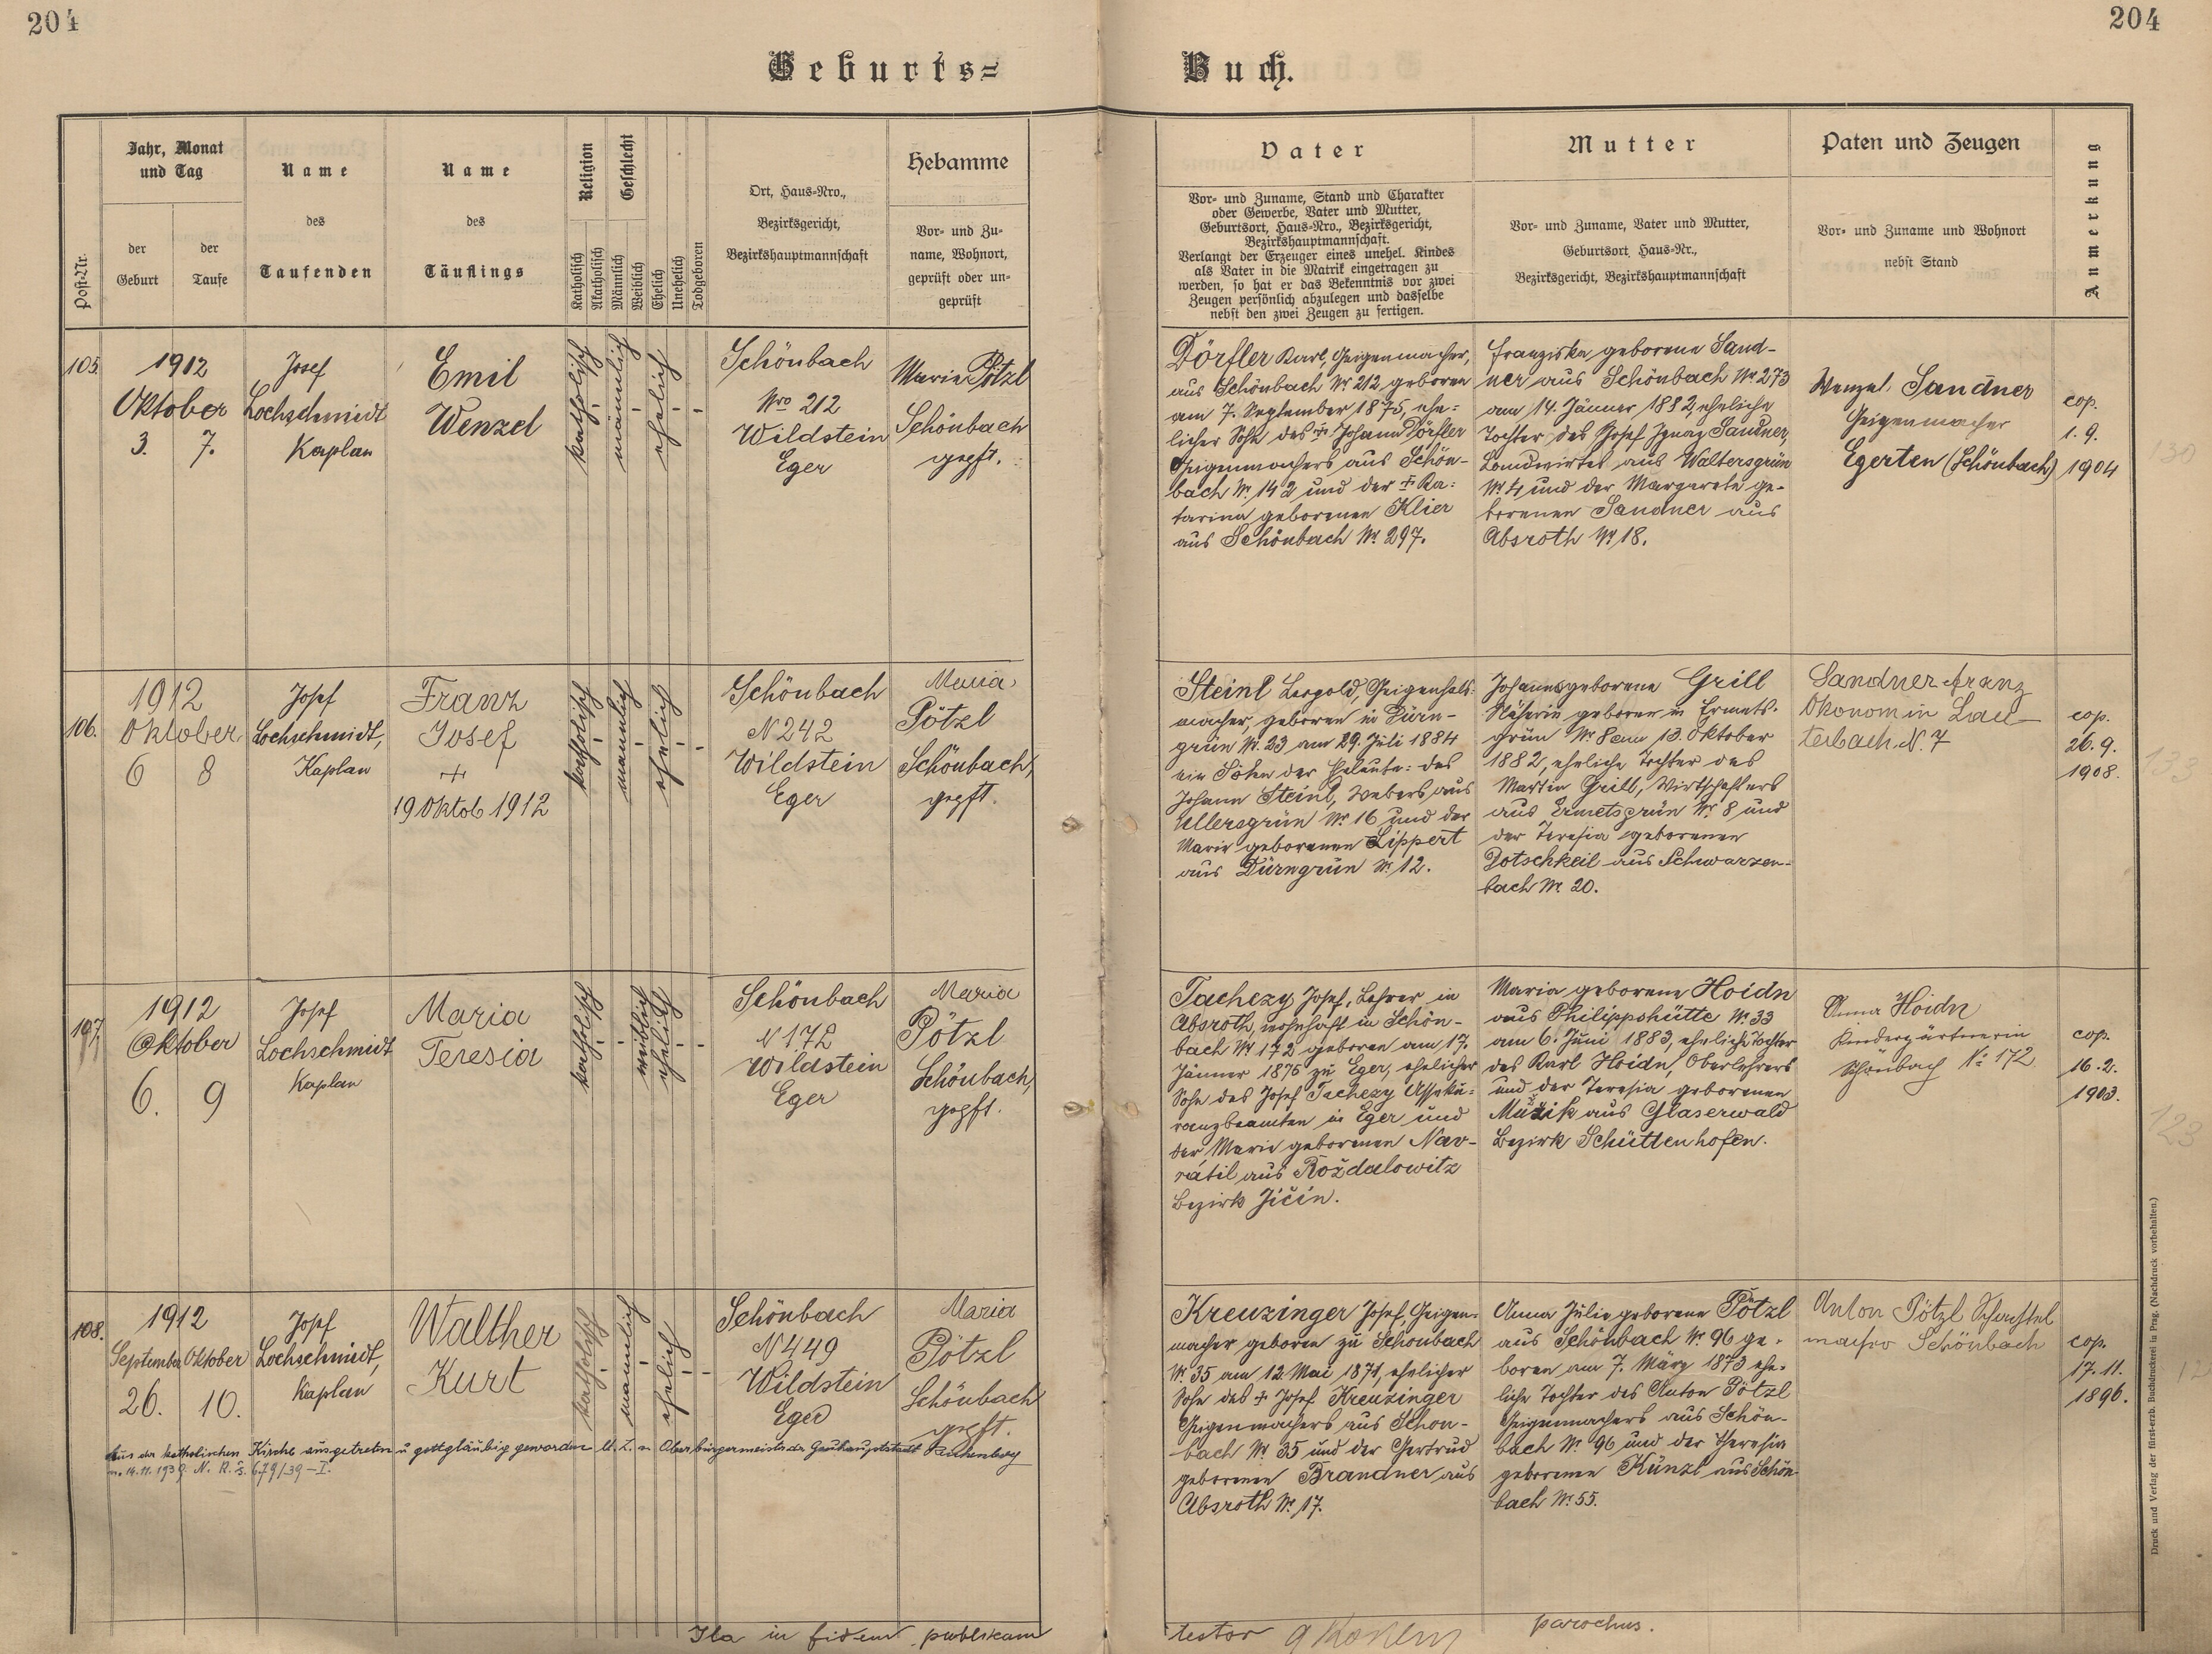 204
204
Geburts=
Buch.
Post-Nr.
Jahr, Monat
und Tag
der
Geburt
der
Taufe
Name
des
Taufenden
Name
des
Täuflings
Religion
Katholisch
Akatholisch
Geschlecht
Männlich
Weiblich
Ehelich
Unehelich
Todgeboren
Ort, Haus-Nro.,
Bezirksgericht,
Bezirkshauptmannschaft
Hebamme
Vor- und Zu-
name, Wohnort,
geprüft oder un-
geprüft
Vater
Vor- und Zuname, Stand und Charakter
oder Gewerbe, Vater und Mutter,
Geburtsort, Haus-Nro., Bezirksgericht,
Bezirkshauptmannschaft.
Verlangt der Erzeuger eines unehel. Kindes
als Vater in die Matrik eingetragen zu
werden, so hat er das Bekenntnis vor zwei
Zeugen persönlich abzulegen und dasselbe
nebst den zwei Zeugen zu fertigen.
Mutter
Vor- und Zuname, Vater und Mutter,
Geburtsort, Haus-Nr.,
Bezirksgericht, Bezirkshauptmannschaft
Paten und Zeugen
Vor- und Zuname und Wohnort
nebst Stand
Anmerkung
105
1912
Oktober
3. 7.
Josef
Lochschmidt
Kaplan
Emil
Wenzel
katholisch
männlich
ehelich
Schönbach
Nro 212
Wildstein
Eger
Marie Pötzl
Schönbach
gepft.
Dörfler Karl, Geigenmacher,
aus Schönbach Nr 212, geboren
am 7. September 1875, ehe=
licher Sohn des + Johann Dörfler
Geigenmachers aus Schön-
bach Nr. 142 und der + Ka=
tarina geborenen Klier
aus Schönbach Nr. 297.
Franziska geborene Sand-
ner aus Schönbach Nr 273
am 14. Jänner 1882, eheliche
Tochter des Josef Ignaz Sandner,
Landwirtes aus Waltersgrün
Nr 4 und der Margarete ge-
borenen Sandner aus
Absroth Nr 18.
Wenzel Sandner
Geigenmacher
Egerten (Schönbach)
cop.
1. 9.
1904
130
106.
1912
Oktober
6 8
Josef
Lochschmidt,
Kaplan
Franz
Josef
+
19 Oktob 1912
katholisch
männlich
ehelich
Schönbach
N 242
Wildstein
Eger
Maria
Pötzl
Schönbach,
gepft.
Steinl Leopold, Geigenhals=
macher, geboren in Dürn-
grün Nr. 23 am 29. Juli 1884
ein Sohn der Eheleute: des
Johann Steinl, Webers aus
Ullersgrün Nr 16 und der
Marie geborenen Lippert
aus Dürngrün Nr. 12.
Johanna geborene Grill
Näherin geboren in Ermets-
grün Nr 8 am 13. Oktober
1882, eheliche Tochter des
Martin Grill, Wirtschafters
aus Ermetsgrün Nr. 8 und
der Teresia geborenen
Dotschkeil aus Schwarzen-
bach Nr. 20.
Sandner Franz
Ökonom in Lau-
terbach. N. 7
cop.
26. 9.
1908.
133
107
1912
Oktober
6. 9
Josef
Lochschmidt
Kaplan
Maria
Teresia
katholisch
weiblich
ehelich
Schönbach
N 172
Wildstein
Eger
Maria
Pötzl
Schönbach,
gepft.
Tachezy Josef, Lehrer in
Absroth, wohnhaft in Schön-
bach Nr 172 geboren am 17.
Jänner 1876 zu Eger, ehelicher
Sohn des Josef Tachezy Asseku=
ranzbeamten in Eger und
der Marie geborenen Nav-
rátil aus Rožďalowitz
Bezirk Jičín.
Maria geborene Hoidn
aus Philippshütte Nr. 33
am 6. Juni 1883, eheliche Tochter
des Karl Hoidn, Oberlehrers
und der Teresia geborenen
Mužik aus Glaserwald
Bezirk Schüttenhofen.
Anna Hoidn
Kindergärtnerin
Schönbach No 172
cop.
16. 2.
1903.
123
108.
1912
September Oktober
26. 10.
Josef
Lochschmidt,
Kaplan
Walther
Kurt
katholisch
männlich
ehelich
Schönbach
N 449
Wildstein
Eger
Maria
Pötzl
Schönbach
gepft.
Kreuzinger Josef, Geigen-
macher geboren zu Schönbach
Nr. 35 am 12 Mai 1871, ehelicher
Sohn des + Josef Kreuzinger
Geigenmachers aus Schön-
bach Nr 35 und der Gertrud
geborenen Brandner aus
Absroth Nr. 17.
Anna Julie geborene Pötzl
aus Schönbach Nr. 96 ge-
boren am 7. März 1873 ehe-
liche Tochter des Anton Pötzl
Geigenmachers aus Schön-
bach Nr 96 und der Theresia
geborenen Künzl aus Schön-
bach Nr. 55.
Anton Pötzl Schachtel
macher Schönbach
cop.
17. 11.
1896.
Aus der katholischen Kirche ausgetreten u. gottgläubig geworden lt. Z. Oberbürgermeister der Gauhauptstadt Reichenberg
14. 11. 1939 N. R. 679/39-I.
Ita in fidem publicam
testor
parochus.
Druck und Verlag der fürst-erzb. Buchdruckerei in Prag. (Nachdruck vorbehalten.)